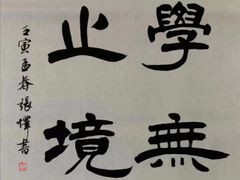 學無
止境
壬寅孟春張懌書